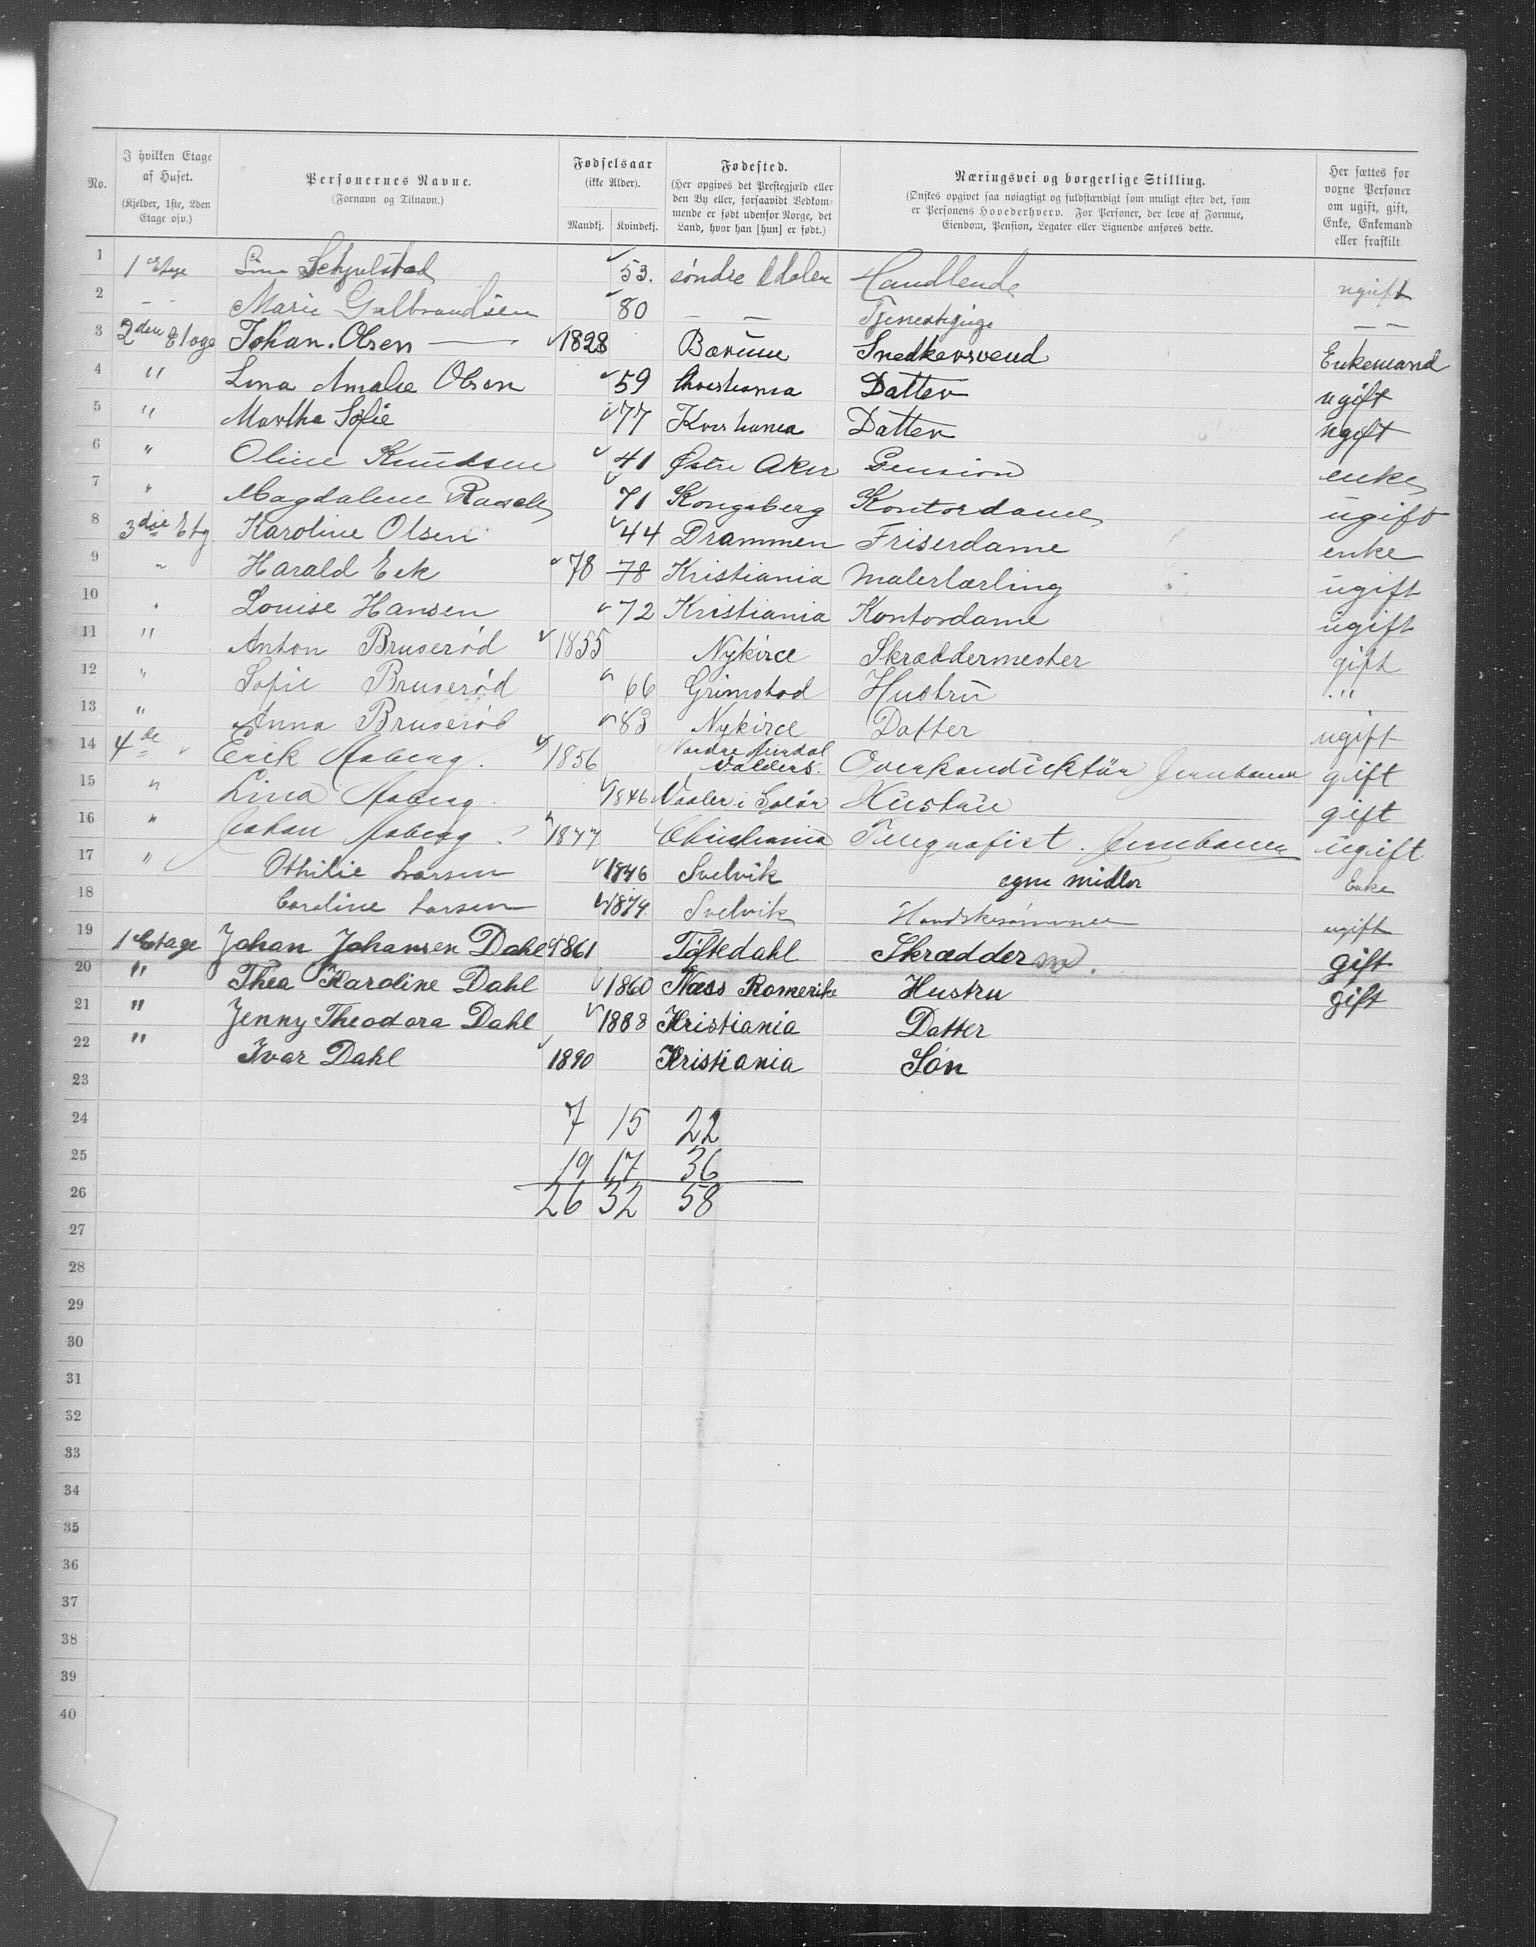 No.
I hvilken Etage
af Huset.
(Kjelder, 1ste, 2den
Etage osv.)
Personernes Navne.
(Fornavn og Tilnavn.)
Fødselsaar
(ikke Alder).
Mandkj. Kvindekj.
Fødested.
(Her opgives det Prestegjæld eller
den By eller, forsaavidt Vedkom-
mende er født udenfor Norge, det
Land, hvor han [hun] er født.)
Næringsvei og borgerlige Stilling.
(Ønskes opgivet saa nøiagtigt og fuldstændigt som muligt efter det, som
er Personens Hovederhverv. For Personer, der leve af Formue,
Eiendom, Pension, Legater eller Lignende anføres dette.
Her sættes for
voxne Personer
om ugift, gift,
Enke, Enkemand
eller fraskilt
1 1 Etge Schjelstad 53. søndre Odalen Handlende ugift
2 - - Marie Gulbrandsen 80 - - Tjenestepige - -
3 2den Etage Johan. Olsen 1828 Bærum Snedkersvend Enkemand
4 " Lina Amalie Olsen 59 Christiania Datter ugift
5 " Martha Sofie 77 Kristiania Datter ugift
6 " Oline Knudsen 41 Østre Aker Pension enke
7 " Magdalene Rasch 71 Kongsberg Kontordame ugift
8 3die Etg. Karoline Olsen 44 Drammen Friserdame enke
9 " Harald Eek 78 78 Kristiania Malerlærling ugift
10 " Louise Hansen 72 Kristiania Kontordame ugift
11 " Anton Bruserød 1855 Nykirce Skræddermester gift
12 " Sofie Bruserød 66 Grimstad Hustru "
13 " Anna Bruserød 83 Nykirce Datter ugift
14 4de Erik Aaberg. 1856 Nordre Aurdal Valders. Overkonduktør Jernbanen gift
15 " Lina Aaberg 1846 Vaaler i Solør Hustru gift
16 " Johan Aaberg. 1877 Christiania Telegrafist. Jernbanen ugift
17 " Othilie Larsen 1846 Svelvik egne midler Enke
18 Caroline Larsen 1874 Svelvik Handskesømmer ugift
19 1 Etage Johan Johansen Dahl 1861 Tiftedahl Skrædder sv. gift
20 " Thea Karoline Dahl 1860 Næss Romerike Hustru gift
21 " Jenny Theodora Dahl 1888 Kristiania Datter
22 " Ivar Dahl 1890 Kristiania Søn
23
24 7 15 22
25 19 17 36
26 26 32 58
27
28
29
30
31
32
33
34
35
36
37
38
39
40